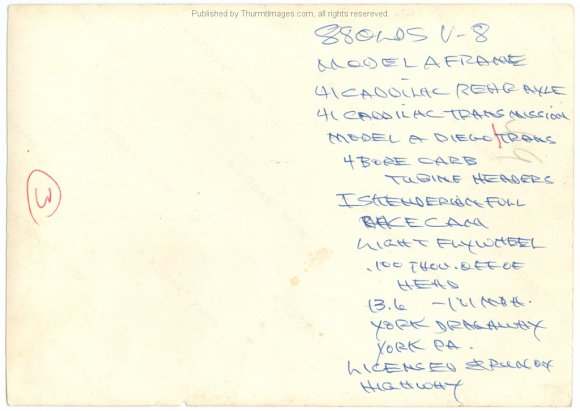 Published by ThurmtImages.com, all rights reserved
88 OLDS V-8
MODEL A FRAME
41 CADDILAC REAR AXLE
41 CADDILAC TRANSMISSION
MODEL A DIEGO TRANS
4 BORE CARB
TUBING HEADERS
ISKENDERIAN FULL
RACE CAM
LIGHT FLYWHEEL
.100 THOU. OFF OF
HEAD
13.6 - 121 MPH.
YORK DRAGAWAY
YORK PA.
LICENSED & RUN ON
HIGHWAY
3